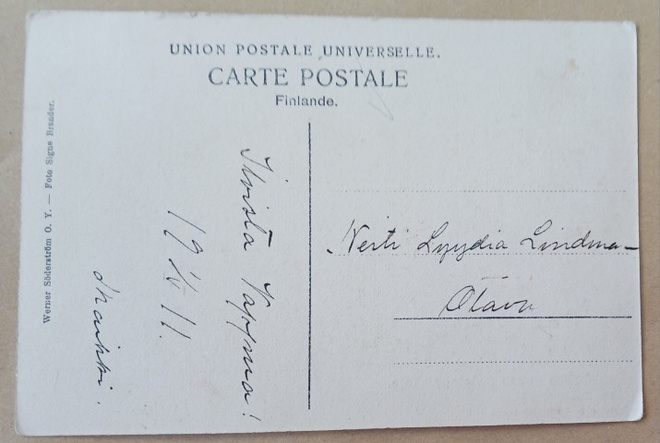 UNION POSTALE UNIVERSELLE.
CARTE POSTALE
Finlande.
Werner Söderström O. Y. — Foto Signe Brander.
Vappua!
19 11.
Neiti Lyydia Lindman
Otava